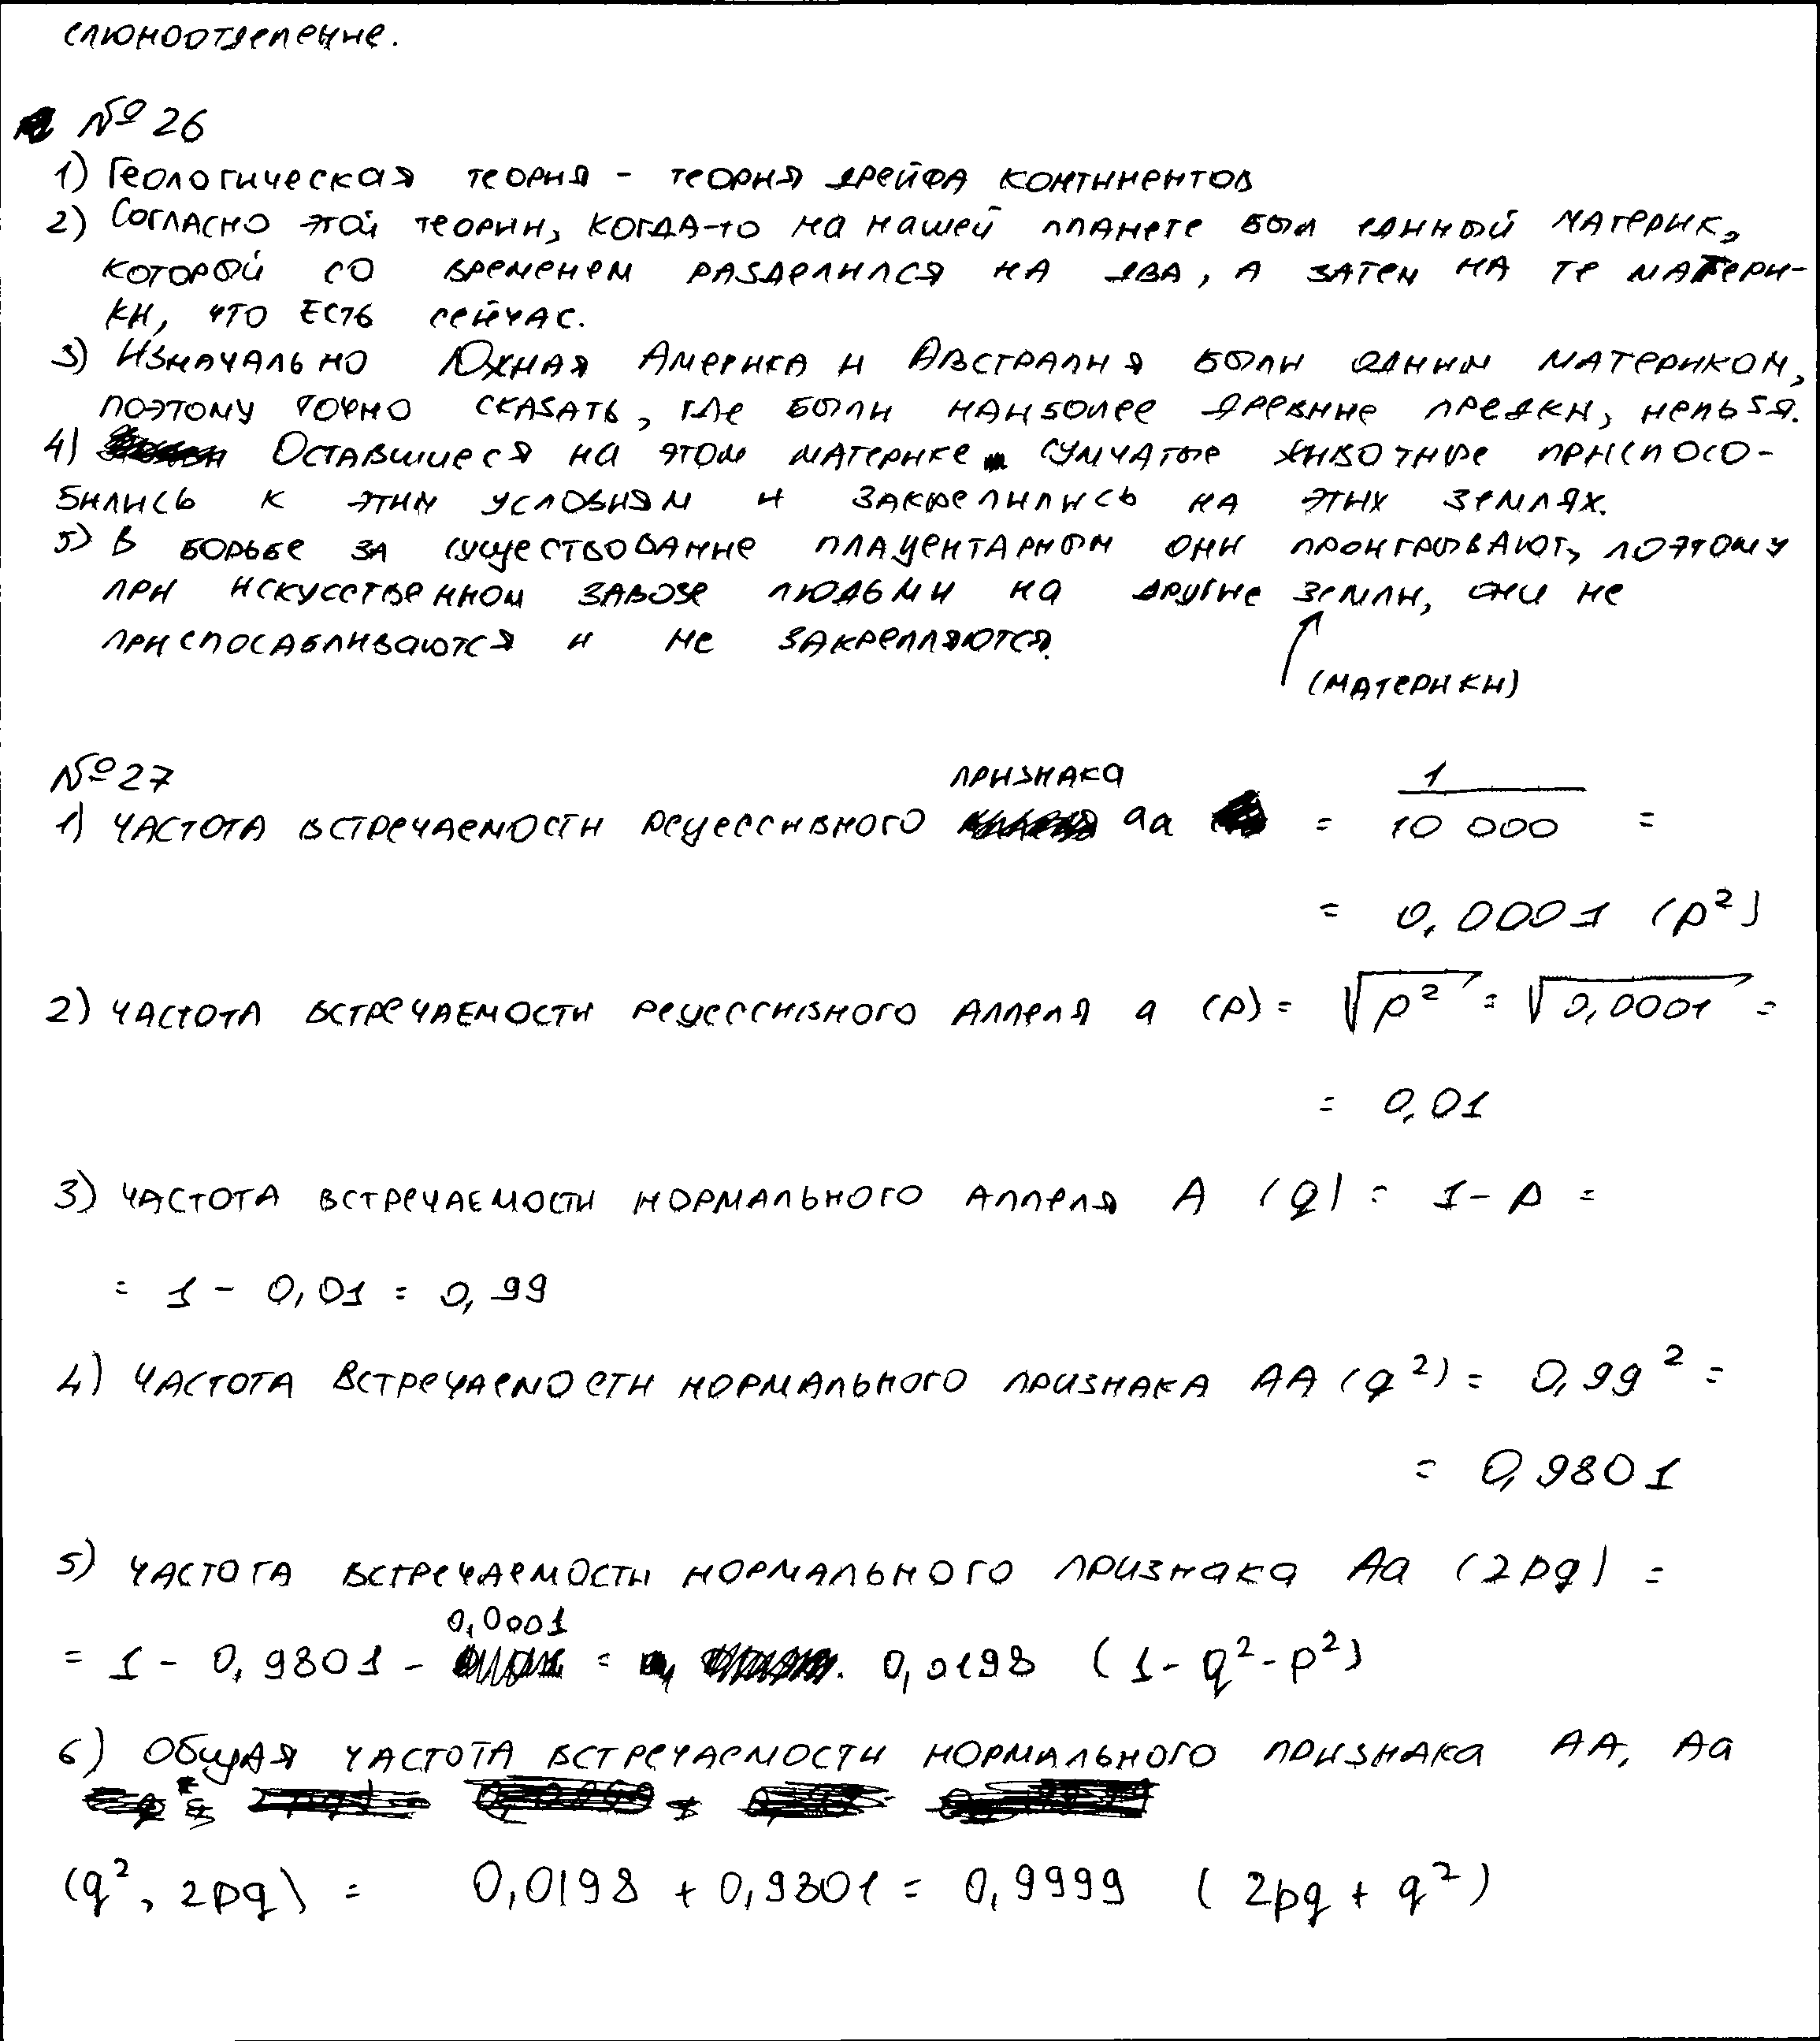 слюноотделение.
№ 26
1) Геологическая теория - теория дрейфа континентов
2) Согласно этой теории, когда-то на нашей планете был единый материк,
которой со временем разделился на два, а затем на те матери-
ки, что есть сейчас.
3) Изначально Южная Америка и Австралия были одним материком,
поэтому точно сказать, где были наиболее древние предки, нельзя.
4) Оставшиеся на этом материке сумчатые животные приспосо-
бились к этим условиям и закрепились на этих землях.
5) В борьбе за существование плацентарным они проигрывают, поэтому
при искусственном завозе людьми на другие земли, они не
приспосабливаются и не закрепляются.
(материки)
№ 27
признака
1) частота встречаемости рецессивного аа = 1/10 000 =
= 0,0001 (p²)
2) частота встречаемости рецессивного аллеля а (p) = √p² = √0,0001 =
= 0,01
3) частота встречаемости нормального аллеля А (q) = 1 - p =
= 1 - 0,01 = 0,99
4) частота встречаемости нормального признака АА (q²) = 0,99² =
= 0,9801
5) частота встречаемости нормального признака Аа (2pq) =
0,0001
= 1 - 0,9801 - = 0,0198 (1 - q² - p²)
6) Общая частота встречаемости нормального признака АА, Аа
(q², 2pq) = 0,0198 + 0,9801 = 0,9999 (2pq + q²)